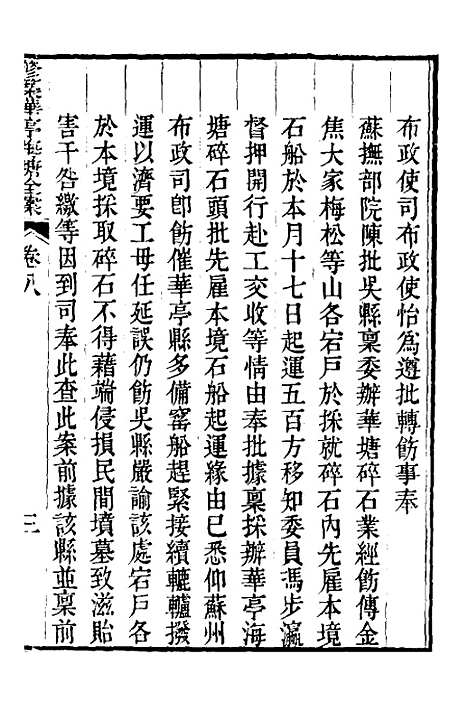 布政使司布政使怡為遵批轉飭事奉
蘇撫部院陳批吳縣稟委辦華塘碎石業經飭傳金
焦大家梅松等山各宕戶於採就碎石內先雇本境
石船於本月十七日起運五百方移知委員馮步瀛
督押開行赴工交收等情由奉批據稟採辦華亭海
塘碎石頭批先雇本境石船起運緣由已悉仰蘇州
布政司卽飭催華亭縣多備窑船趕緊接續轆轤撥
運以濟要工毋任延誤仍飭吳縣嚴諭該處宕戶各
於本境採取碎石不得藉端侵損民間墳墓致滋貽
害干咎繳等因到司奉此查此案前據該縣並稟前
修華亭海塘全案
卷八
三